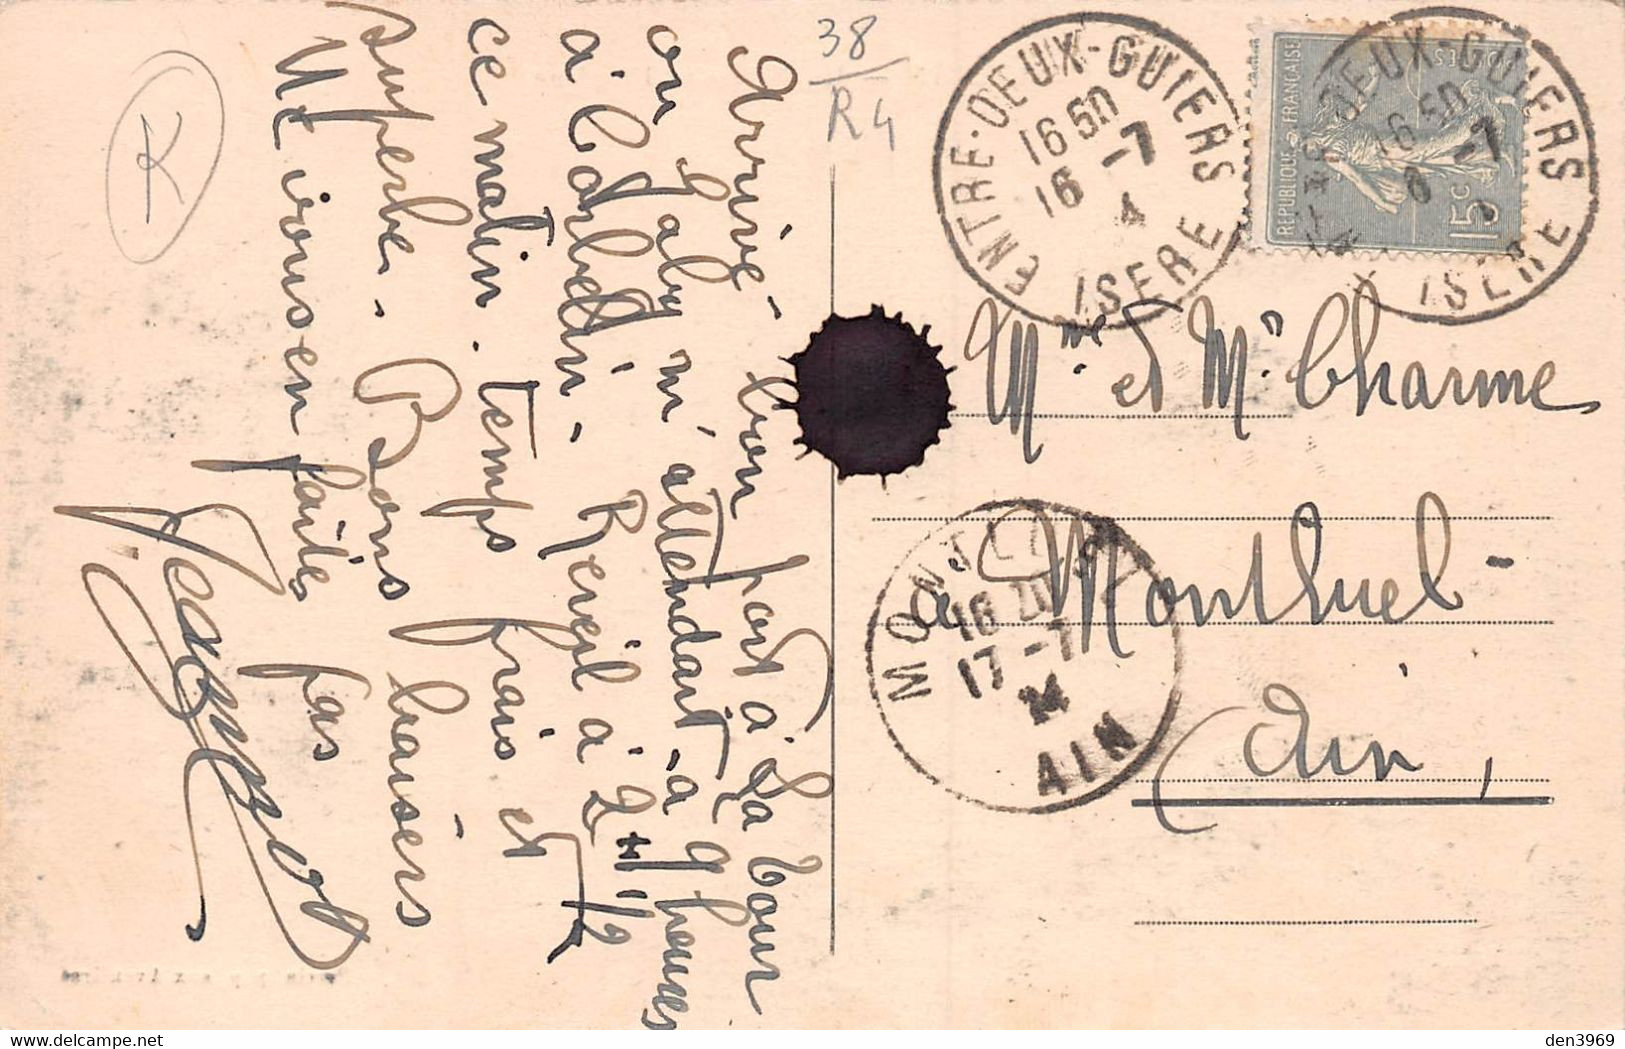 Arrivé bon port à La Tour
ou Gaby m'attendait à 9 heures
à Corbelin. Réveil à 2H 1/2
ce matin. temps frais et
superbe. Bons baisers
Ne vous en faites pas
38
R4
K
ENTRE-DEUX-GUIERS
16 50
16 -7
4
ISERE
REPUBLIQUE FRANÇAISE
POSTES
15c
DEUX-GUIERS
16 50
-7
ISERE
Mme et Mr Charme
à Montluel
Ain
MONTLUEL
16
17 -7
24
AIN
den3969